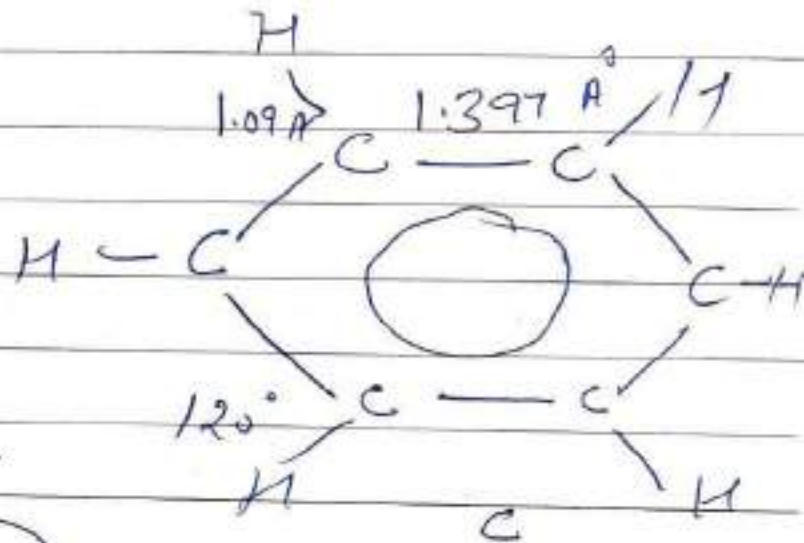 H
1.09 A 1.397 A° H
C — C
H — C C — H
120° C — C
H H
C